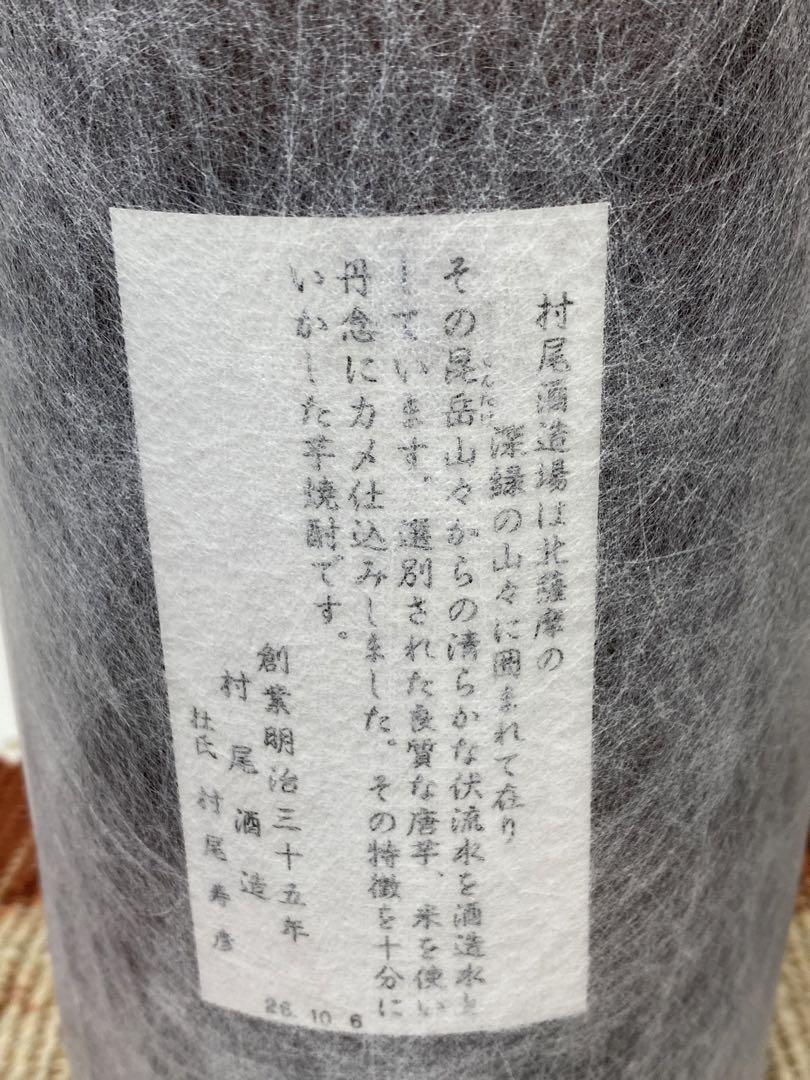 村尾酒造場は北薩摩の
深緑の山々に囲まれて在り
その昆岳山々からの清らかな伏流水を酒造水と
こんだけ
しています。選別された良質な唐芋、米を使い
丹念にカメ仕込みしました。その特徴を十分に
いかした芋焼酎です。
創業明治三十五年
村尾酒造
杜氏 村尾寿彦
26.10.6